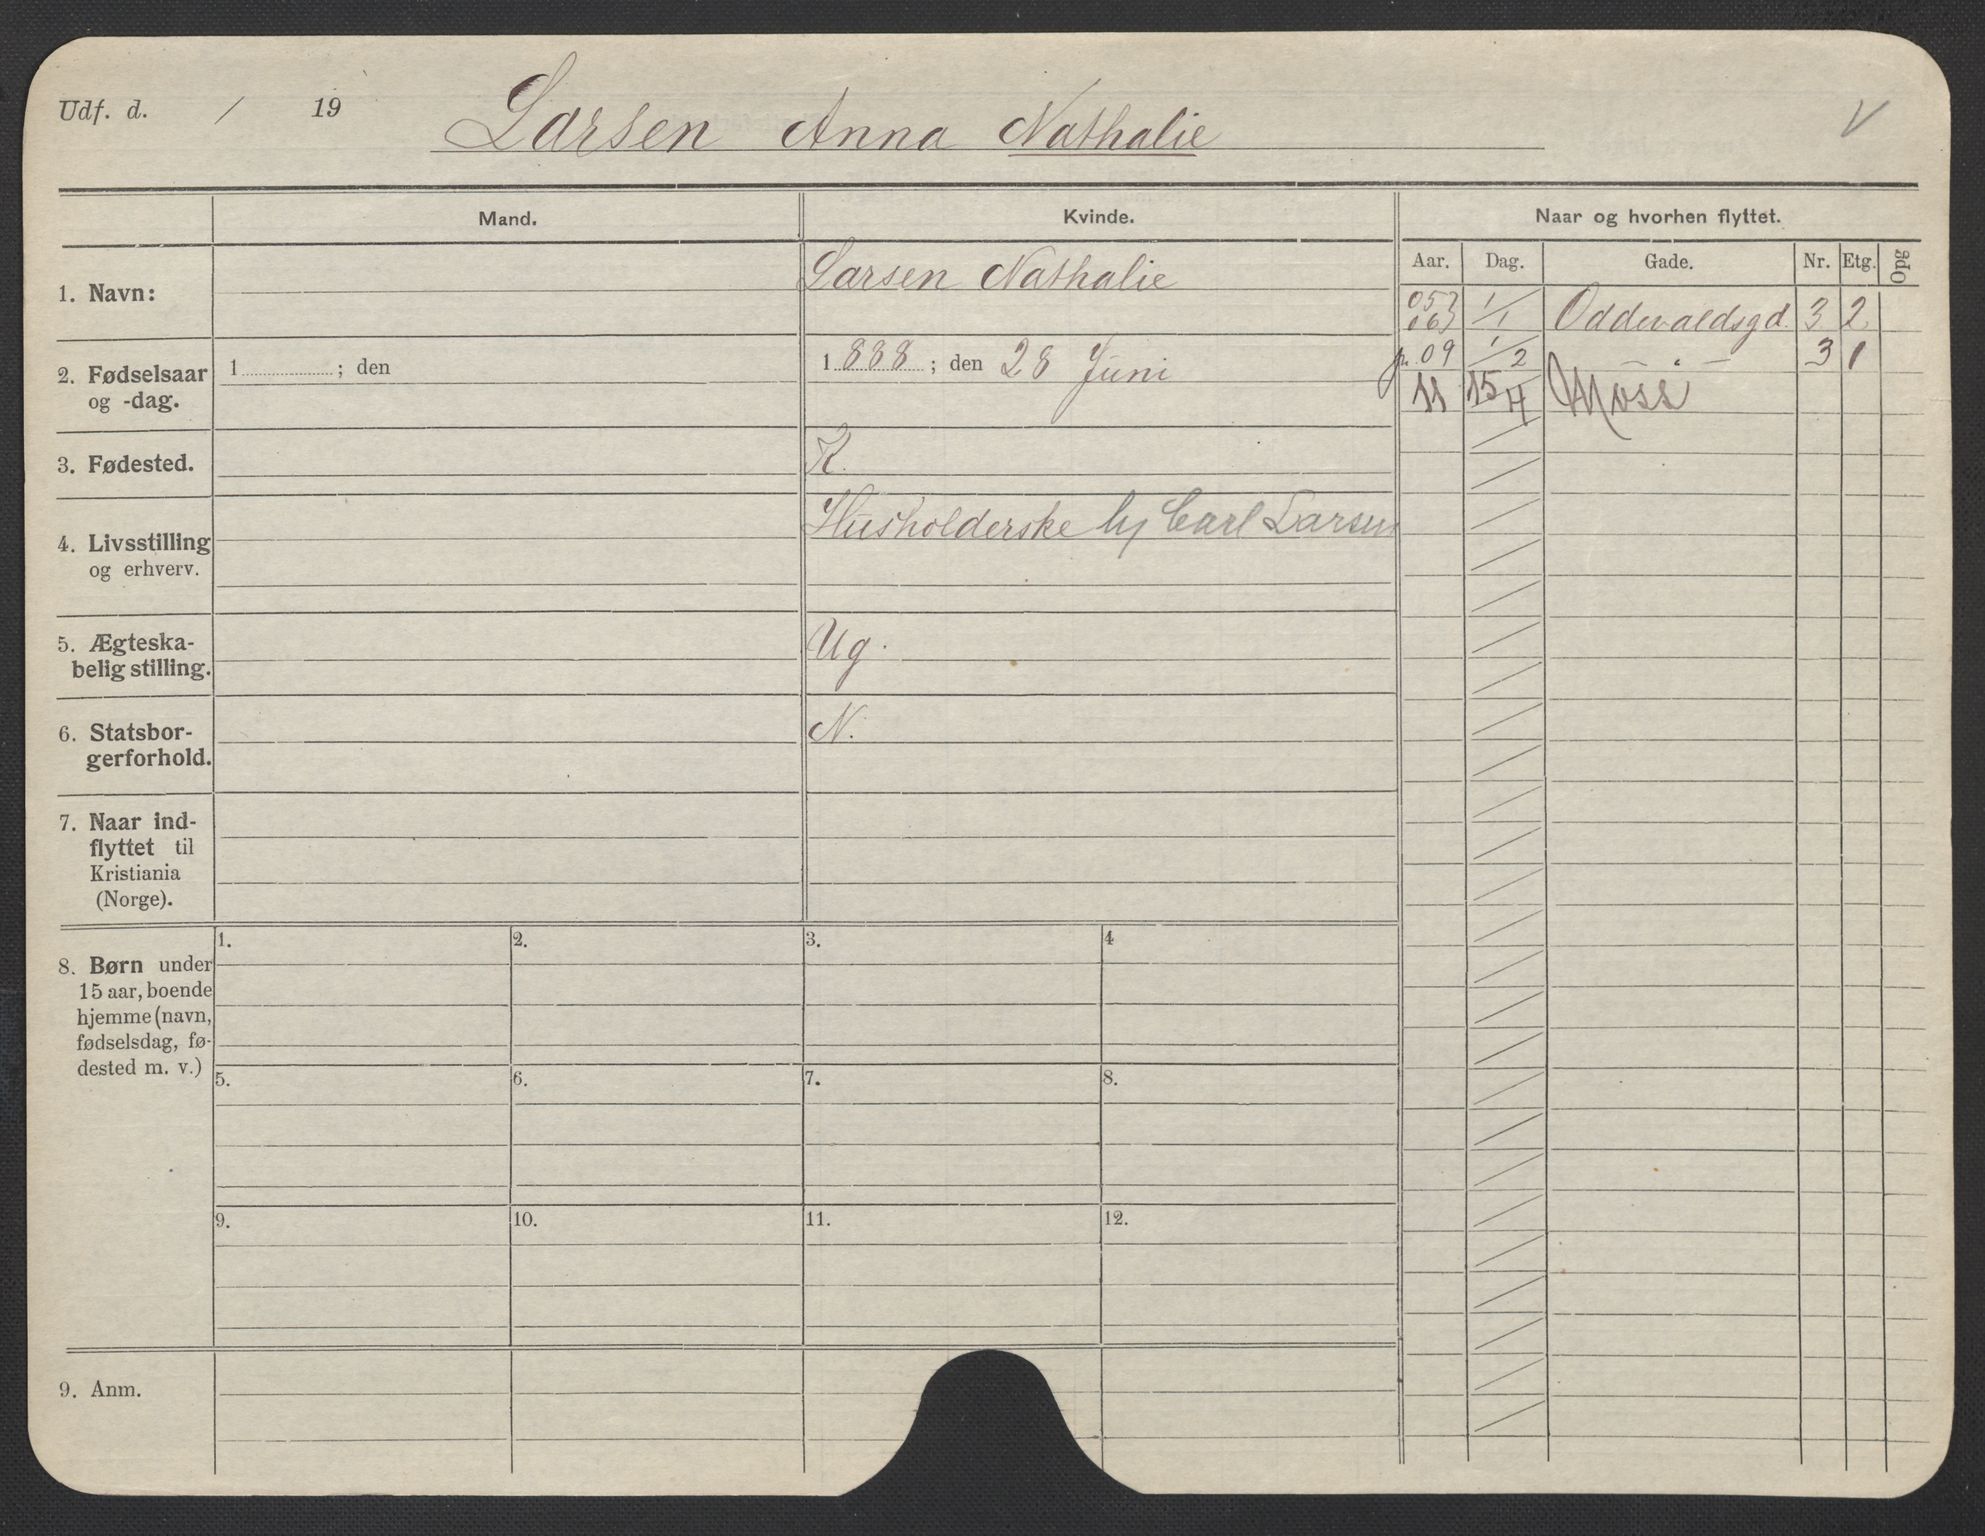 Udf. d. / 19 Larsen Anna Nathalie V
Mand. Kvinde. Naar og hvorhen flyttet.
Aar. Dag. Gade. Nr. Etg. Opg
1. Navn: Larsen Nathalie
05} 06} 1/1 Oddevaldsgd. 3 2
2. Fødselsaar og -dag. 1 ; den 1888 ; den 28 Juni
p. 09 1/2 — " — 3 1
11 15/4 Moss
3. Fødested. K.
4. Livsstilling og erhverv. Husholderske hj Carl Larsen
5. Ægteska-
belig stilling. Ug.
6. Statsbor-
gerforhold. N.
7. Naar ind-
flyttet til
Kristiania
(Norge).
8. Børn under
15 aar, boende
hjemme (navn,
fødselsdag, fø-
dested m. v.)
1. 2. 3. 4
5. 6. 7. 8.
9. 10. 11. 12.
9. Anm.